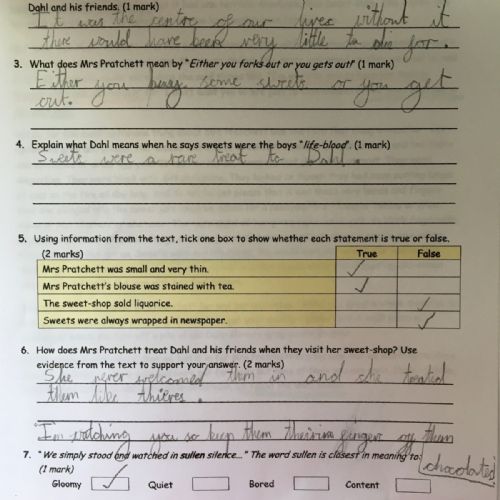 Dahl and his friends. (1 mark)
It was the centre of our lives without it
there would have been very little to die for.
3. What does Mrs Pratchett mean by "Either you forks out or you gets out" (1 mark)
Either you buy some sweets or you get
out.
4. Explain what Dahl means when he says sweets were the boys "life-blood". (1 mark)
Sweets were a rare treat to Dahl.
5. Using information from the text, tick one box to show whether each statement is true or false.
(2 marks) True False
Mrs Pratchett was small and very thin.
Mrs Pratchett's blouse was stained with tea.
The sweet-shop sold liquorice.
Sweets were always wrapped in newspaper.
6. How does Mrs Pratchett treat Dahl and his friends when they visit her sweet-shop? Use
evidence from the text to support your answer. (2 marks)
She never welcomed them in and she treated
them like thieves.
I'm watching you so keep them off them
7. "We simply stood and watched in sullen silence..." The word sullen is closest in meaning to: chocolates
(1 mark)
Gloomy Quiet Bored Content